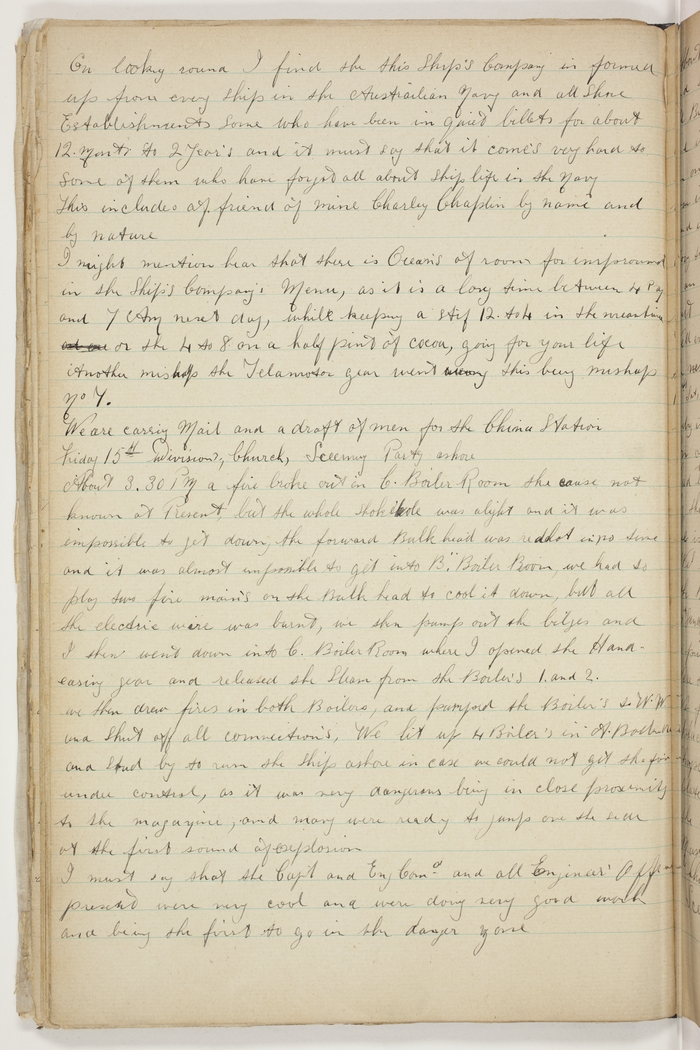 On lookg round I find the this Ship's Company is formed
up from every ship in the Austrailian Navy and all Shore
Establishments some who have been in gaied billets for about
12. Months to 2 Year's and it must say that it come's very hard to
some of them who have forgot all about ship life in the Navy
This includes a friend of mine Charley Chaplin by name and
by nature
I might mention hear that there is Ocean's of room for
in the Ship's Company's Menu, as it is a long time between 4
and 7 Am next day, while keeping a 12. to 4 in the
or the 4 to 8. on a half pint of cocoa, going for your life
Another mishap the Telamotor gear went this being mishap
No 7.
We are carrig Mail and a draft of men for the China Station
Friday 15th Division's, Church, Party ashore
About 3.30 PM a fire broke out in C. Boiler Room the cause not
known at Present, but the whole stokehole was alight and it was
impossible to get down, the forward Bulk head was redhot in no time
and it was almost impossible to get into B. Boiler Room, we had to
play two fire main's on the Bulk head to cool it down, but all
the electric wire was burnt, we then pump out the bilges and
I then went down into C. Boiler Room where I opened the Hand-
easing gear and released the Steam from the Boiler's 1. and 2.
we then drew fires in both Boilers, and pumped the Boiler's to W.W
and Shut off all connection's, We lit up 4 Boiler's in A.
and Stud by to run the Ship ashore in case we could not get the fire
under control, as it was very dangerous being in close proximity
to the magazine, and many were ready to jump ove the
at the first sound of explosion
I must say that the Capt and Eng Comd and all Engineer
present were very cool and were doing very good work
and being the first to go in the danger zone